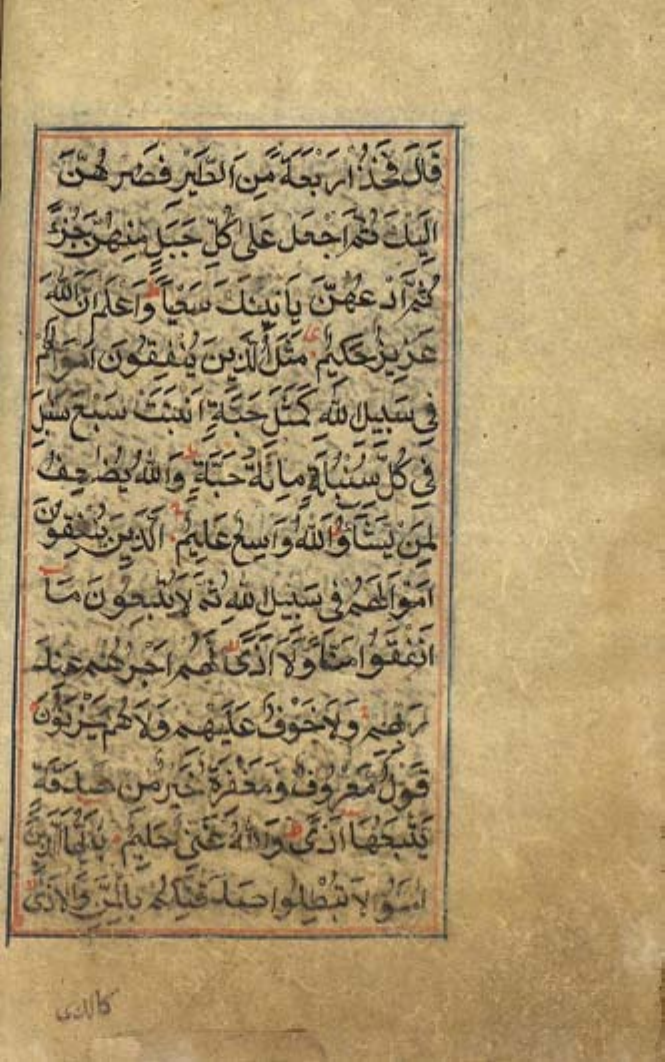 قَالَ فَخُذْ اَرْبَعَةً مِّنَ الطَّيْرِ فَصُرْهُنَّ
اِلَيْكَ ثُمَّ اجْعَلْ عَلٰى كُلِّ جَبَلٍ مِنْهُنَّ جُزْءً
ثُمَّ ادْعُهُنَّ يَاْتِينَكَ سَعْيًا ط وَاعْلَمْ اَنَّ اللّٰهَ
عَزِيزٌ حَكِيمٌ مَثَلُ الَّذِينَ يُنْفِقُونَ اَمْوَالَهُمْ
فِى سَبِيلِ اللّٰهِ كَمَثَلِ حَبَّةٍ اَنْبَتَتْ سَبْعَ سَنَابِلَ
فِى كُلِّ سُنْبُلَةٍ مِائَةُ حَبَّةٍ ط وَاللّٰهُ يُضٰعِفُ
لِمَنْ يَشَآءُ ط وَاللّٰهُ وَاسِعٌ عَلِيمٌ اَلَّذِينَ يُنْفِقُونَ
اَمْوَالَهُمْ فِى سَبِيلِ اللّٰهِ ثُمَّ لَا يُتْبِعُونَ مَا
اَنْفَقُوا مَنًّا وَلَا اَذًى لَهُمْ اَجْرُهُمْ عِنْدَ
رَبِّهِمْ وَلَا خَوْفٌ عَلَيْهِمْ وَلَا هُمْ يَحْزَنُونَ
قَوْلٌ مَعْرُوفٌ وَمَغْفِرَةٌ خَيْرٌ مِنْ صَدَقَةٍ
يَتْبَعُهَا اَذًى ط وَاللّٰهُ غَنِىٌّ حَلِيمٌ يٰاَيُّهَا الَّذِينَ
اٰمَنُوا لَا تُبْطِلُوا صَدَقَاتِكُمْ بِالْمَنِّ وَالْاَذٰى
كالذى